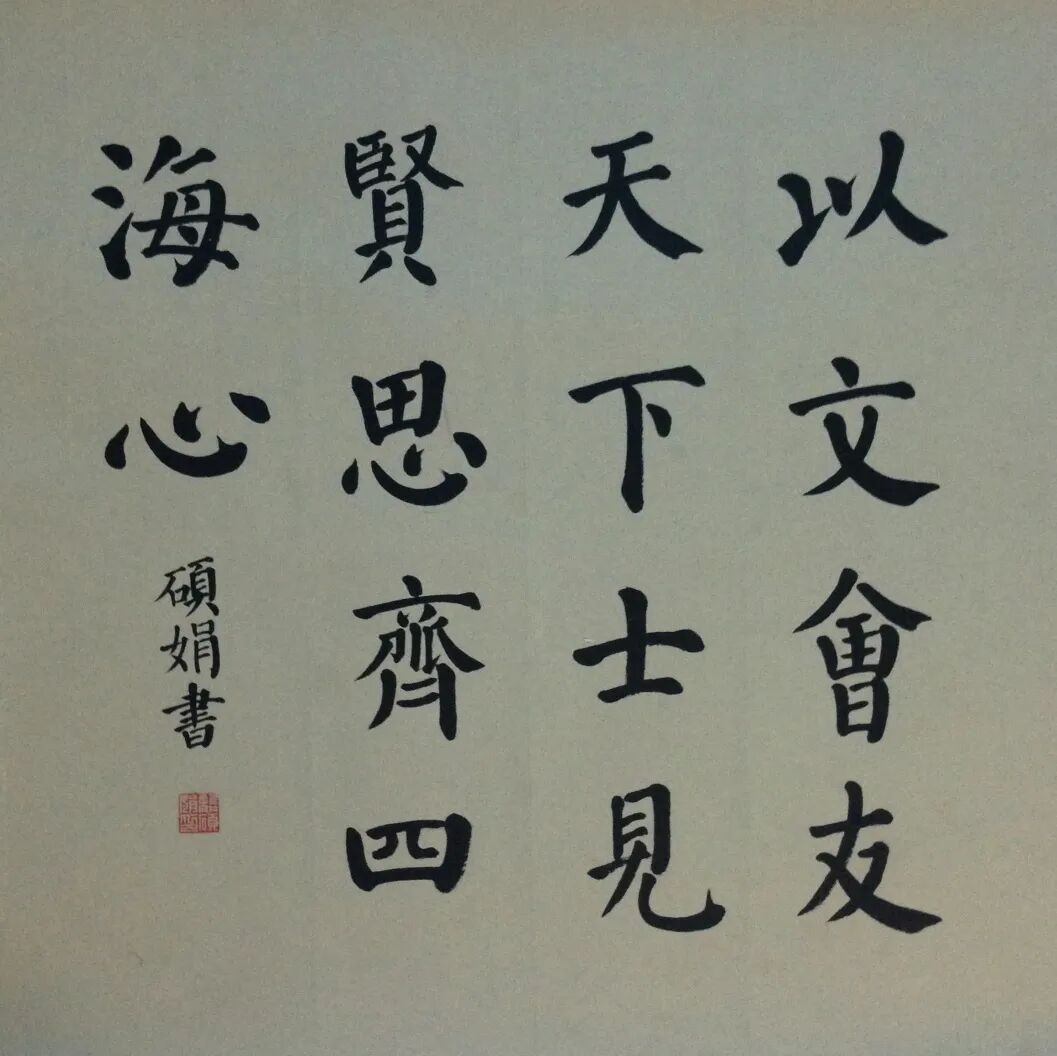 以文會友
天下士見
賢思齊四
海心
碩娟書